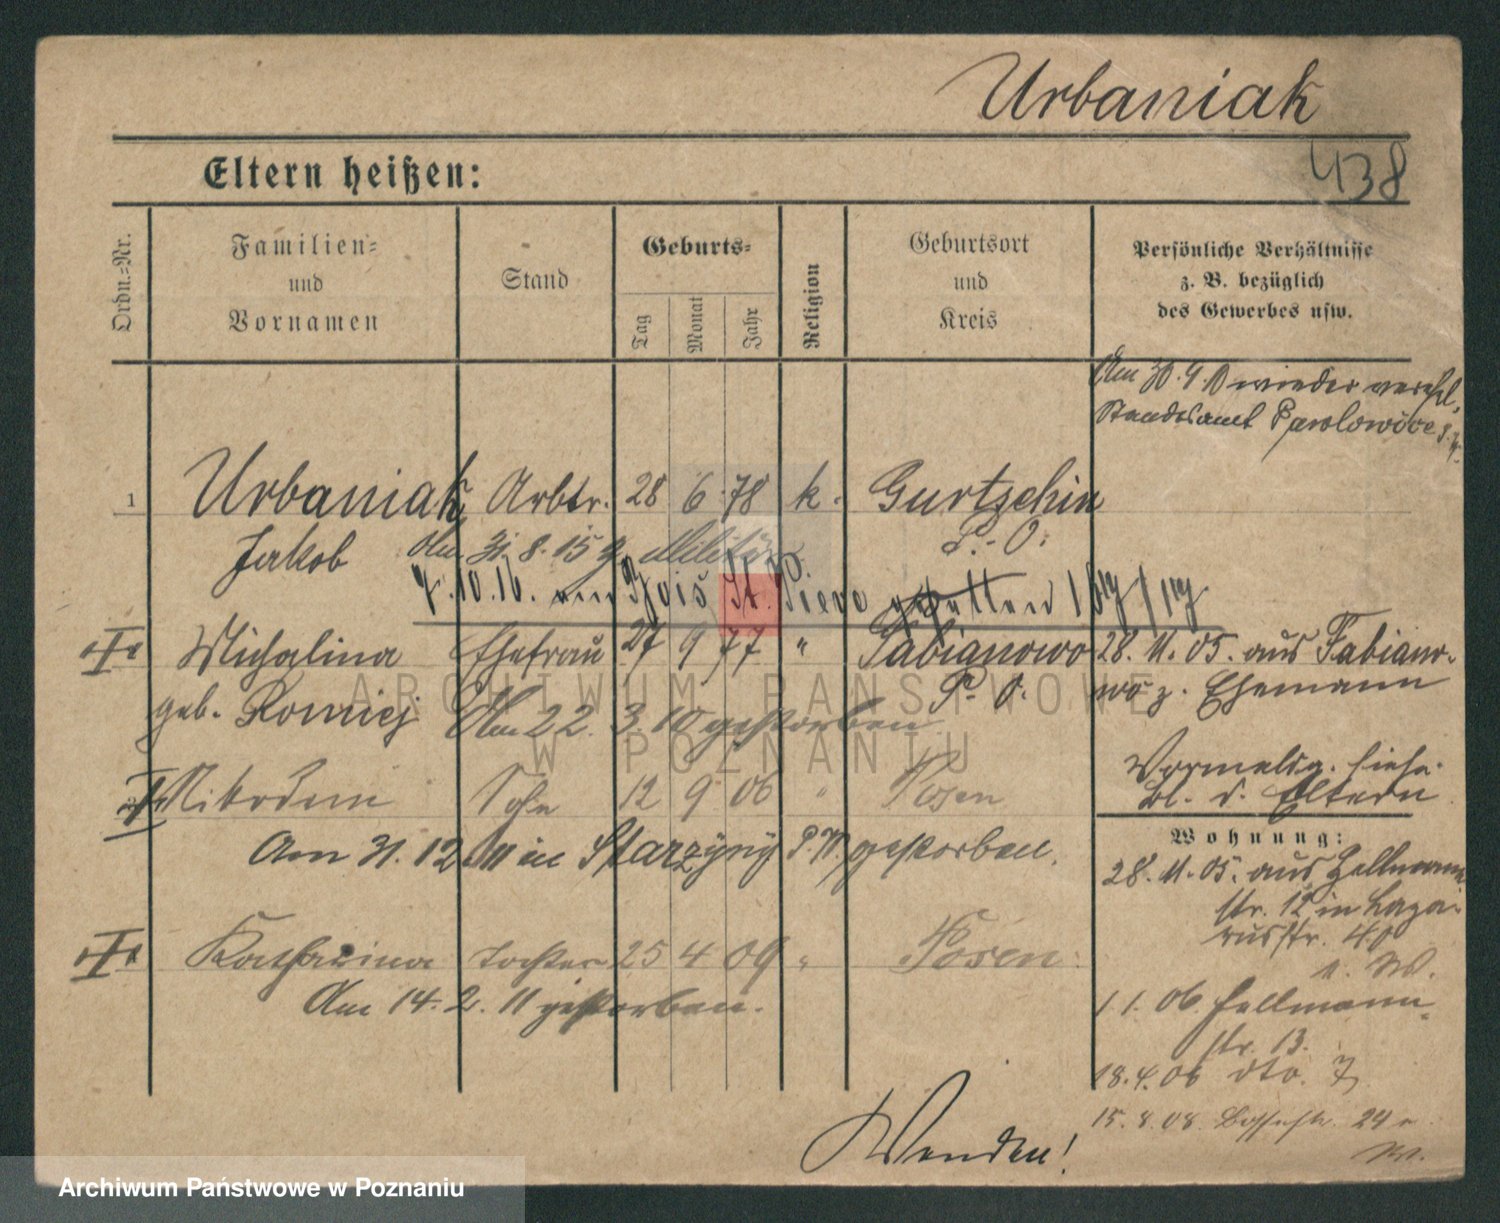 Urbaniak
438
Eltern heißen:
Ordn.=Nr.
Familien= und Vornamen
Stand
Geburts=
Tag
Monat
Jahr
Religion
Geburtsort und Kreis
Persönliche Verhältnisse z. B. bezüglich des Gewerbes usw.
Am 30.9.10 wieder verehel.
Standesamt Pawlowice
1 Urbaniak Arbtr. 28 6. 78 k. Gurtschin
Jakob Am 31.8.15 z. Militär P.-O.
4.10.16. St. Pieve gefallen
Michalina Ehefrau 27 9 77 " Fabianowo 28.11.05. aus Fabiano-
geb. Konieczj P. O. wo z. Ehemann
Am 22.3.10 gestorben
Vormeldg. siehe
Bl. d. Eltern
Nikodem Sohn 12 9 06 " Posen
Am 31.12.11 in Starzyny P.W. gestorben.
Wohnung:
28.11.05. aus Hellmann
str. 12 in Laza-
russtr. 40
Katharina Tochter 25 4 09 " Posen
Am 14.2.11 gestorben.
1.1.06. Hellmann-
str. 13.
18.4.06 dto. 7
15.8.08. 24
Wenden!
ARCHIWUM PAŃSTWOWE
W POZNANIU
Archiwum Państwowe w Poznaniu